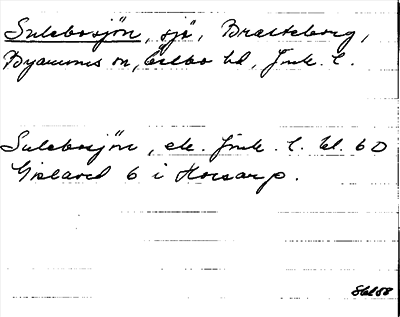 Sulebosjön, sjö, Bratteborg,
Byarums sn, Östbo hd, Jnk. l.
Sulebosjön, ek. Jnk. l. bl. 60
Gislaved 6 i Horsarp.